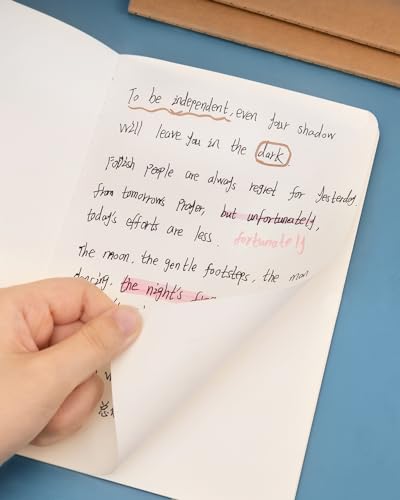 To be independent, even your shadow
will leave you in the dark.
Foolish people are always regret for yesterday
from tomorrow's prayer, but unfortunately,
today's efforts are less. fortunately
The moon, the gentle footsteps, the
dancing, the night's